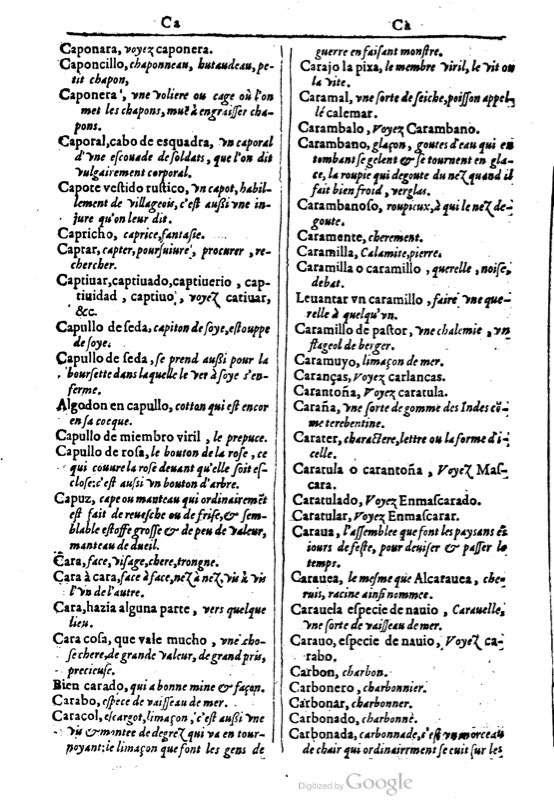 Ca
Caponara, voyez caponera.
Caponcillo, chaponneau, hutaudeau, pe-
tit chapon,
Caponera, vne voliere ou cage où l'on
met les chapons, muë à engraisser cha-
pons.
Caporal, cabo de esquadra, vn caporal
d'vne escouade de soldats, que l'on dit
vulgairement corporal.
Capote vestido rustico, vn capot, habil-
lement de villageois, c'est außi vne in-
jure qu'on leur dit.
Capricho, caprice, fantasie.
Captar, capter, poursuiure, procurer, re-
chercher.
Captiuar, captiuado, captiuerio, cap-
tiuidad, captiuo, voyez catiuar,
&c.
Capullo de seda, capiton de soye, estouppe
de soye.
Capullo de seda, se prend außi pour la
boursette dans laquelle le ver à soye s'en-
ferme.
Algodon en capullo, cotton qui est encor
en sa cocque.
Capullo de miembro viril, le prepuce.
Capullo de rosa, le bouton de la rose, ce
qui couure la rose deuant qu'elle soit es-
close: c'est außi vn bouton d'arbre.
Capuz, cape ou manteau qui ordinairemēt
est fait de reuesche ou de frise, & sem-
blable estoffe grosse & de peu de valeur,
manteau de dueil.
Cara, face, visage, chere, trongne.
Cara à cara, face à face, nez à nez, vis à vis
l'vn de l'autre.
Cara, hazia alguna parte, vers quelque
lieu.
Cara cosa, que vale mucho, vne cho-
se chere, de grande valeur, de grand pris,
precieuse.
Bien carado, qui a bonne mine & façon.
Carabo, espece de vaisseau de mer.
Caracol, escargot, limaçon, c'est außi vne
vis & montee de degrez qui va en tour-
poyant: le limaçon que font les gens de
Cà
guerre en faisant monstre.
Carajo la pixa, le membre viril, le vit ou
la vite.
Caramal, vne sorte de seiche, poisson appel-
lé calemar.
Carambalo, Voyez Carambano.
Carambano, glaçon, goutes d'eau qui en
tombant se gelent & se tournent en gla-
ce, la roupie qui degoute du nez quand il
fait bien froid, verglas.
Carambanoso, roupieux, à qui le nez de-
goute.
Caramente, cherement.
Caramilla, Calamite, pierre.
Caramilla o caramillo, querelle, noise,
debat.
Leuantar vn caramillo, faire vne que-
relle à quelqu'vn.
Caramillo de pastor, vne chalemie, vn
flageol de berger.
Caramuyo, limaçon de mer.
Caranças, Voyez carlancas.
Carantoña, Voyez caratula.
Caraña, vne sorte de gomme des Indes cō-
me terebentine.
Carater, charactere, lettre ou la forme d'i-
celle.
Caratula o carantoña, Voyez Mas-
cara.
Caratulado, Voyez Enmascarado.
Caratular, Voyez Enmascarar.
Caraua, l'assemblee que font les paysans és
iours de feste, pour deuiser & passer le
temps.
Carauea, le mesme que Alcarauea, che-
ruis, racine ainsi nommee.
Carauela especie de nauio, Carauelle,
vne sorte de vaisseau de mer.
Carauo, especie de nauio, Voyez ca-
rabo.
Carbon, charbon.
Carbonero, charbonnier.
Carbonar, charbonner.
Carbonado, charbonné.
Carbonada, carbonnade, c'est vn morceau
de chair qui ordinairrment se cuit sur les
Digitized by Google